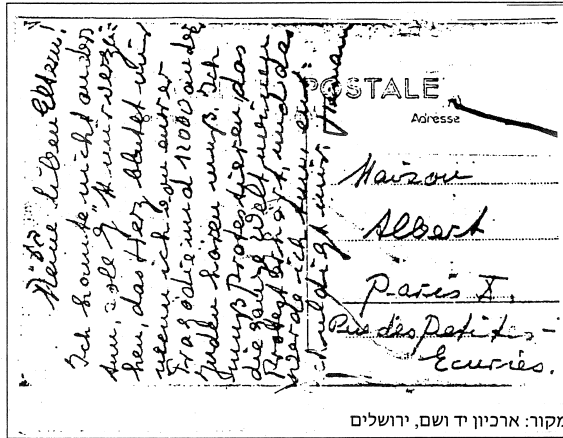 בע״ה
Meine lieben Eltern!
Ich konnte nicht anders
tun, soll G' mir verzei-
hen, das Herz blutet mir
wenn ich von eurer
Tragödie und 12000 ander
Juden hören muß. Ich
muß Protestieren das
die ganze Welt meinen
Protest erhört, und das
werde ich tun, ent-
schuldigt mir. Hermann
POSTALE
Adresse
Maison
Albert
Paris X.
Rue des Petites-
Ecuries.
מקור: ארכיון יד ושם, ירושלים